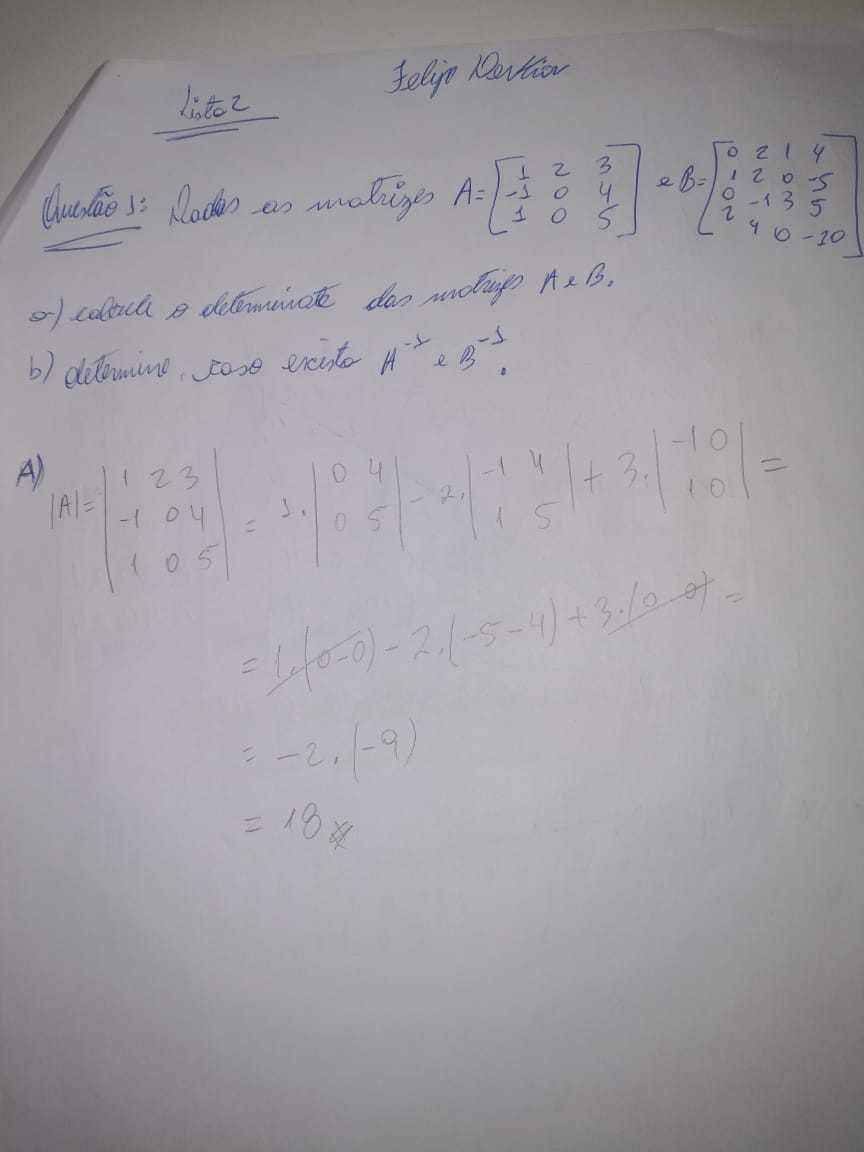 Lista 2
Felipe
Questão 1: Dadas as matrizes A = [1 2 3; -1 0 4; 1 0 5] e B = [0 2 1 4; 1 2 0 -5; 0 -1 3 5; 2 4 0 -10]
a) calcule o determinate das matrizes A e B.
b) determine, caso exista A⁻¹ e B⁻¹.
A) |A| = |1 2 3; -1 0 4; 1 0 5| = 1.|0 4; 0 5| - 2.|-1 4; 1 5| + 3.|-1 0; 1 0| =
= 1.(0-0) - 2.(-5-4) + 3.(0 0) =
= -2.(-9)
= 18